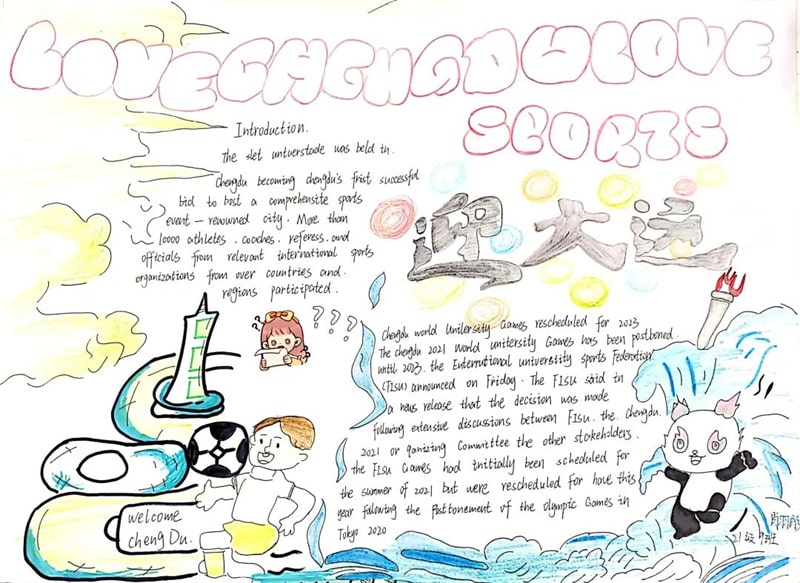 LOVECHENGDULOVE
SPORTS
Introduction.
The slet untuerstade was beld in.
Chengdu becoming chengdu's frist successful
bid to bost a comprehensite sports
event — renowned city. More than
10000 athletes. coaches. referess. and
officials from relevant international sports
organizations from over countries and.
regions participated.
迎大运
? ? ?
Chengdu world Unilersity Games rescheduled for 2023
The chengdu 2021 World unitersity Games has been postboned.
until 2023. the Enterrutional university sports Federation
(FISU) announced on Friday. The FISU said in
a news release that the decision was made
following extensive discussions between FISU. the Chengdu.
2021 or ganizing Committee the other stakeholders.
the FISU Games had initially been scheduled for
the summer of 2021 but were rescheduled for hove this
year following the Posttonement of the olympic Games in
Tokyo 2020
welcome
chengDu.
21级7班